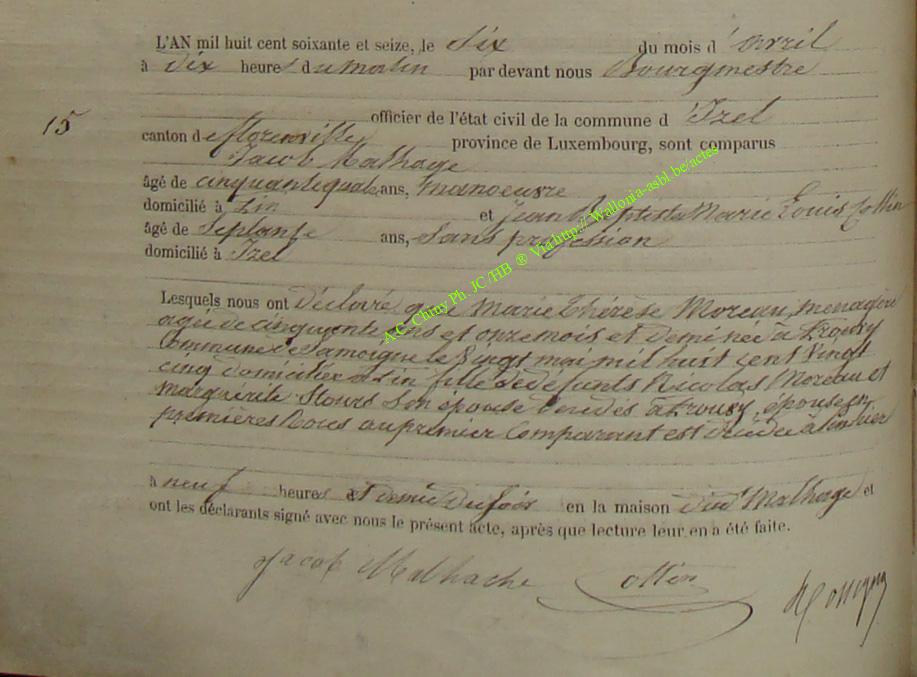 L'AN mil huit cent soixante et seize, le Six du mois d'avril
à dix heures du matin par devant nous Bourgmestre
15
officier de l'état civil de la commune d'Izel
canton de florenville province de Luxembourg, sont comparus
Jacob Malhage
âgé de cinquantequatre ans, manoeuvre
domicilié à fin et Jean Baptiste Marie Louis Collin
âgé de Septante ans, Sans profession
domicilié à Izel
A.C. Chiny Ph. JC /HB ® Via http:// Wallonia-asbl.be/actes
Lesquels nous ont Déclaré que Marie Thérèse Moreau, menagère
agée de cinquante ans et onze mois et demi née à frouxy
Commune de Jamoigne le Vingt mai mil huit cent Vingt
cinq domiciliée à fin fille de defunts Nicolas Moreau et
marguerite Son épouse décédés à frouxy, épouse en
premières Noces au premier Comparant est décédée à fin hier
à neuf heures et demie du soir en la maison dud' Malhage et
ont les déclarants signé avec nous le présent acte, après que lecture leur en a été faite.
Jacob Malhache Collin